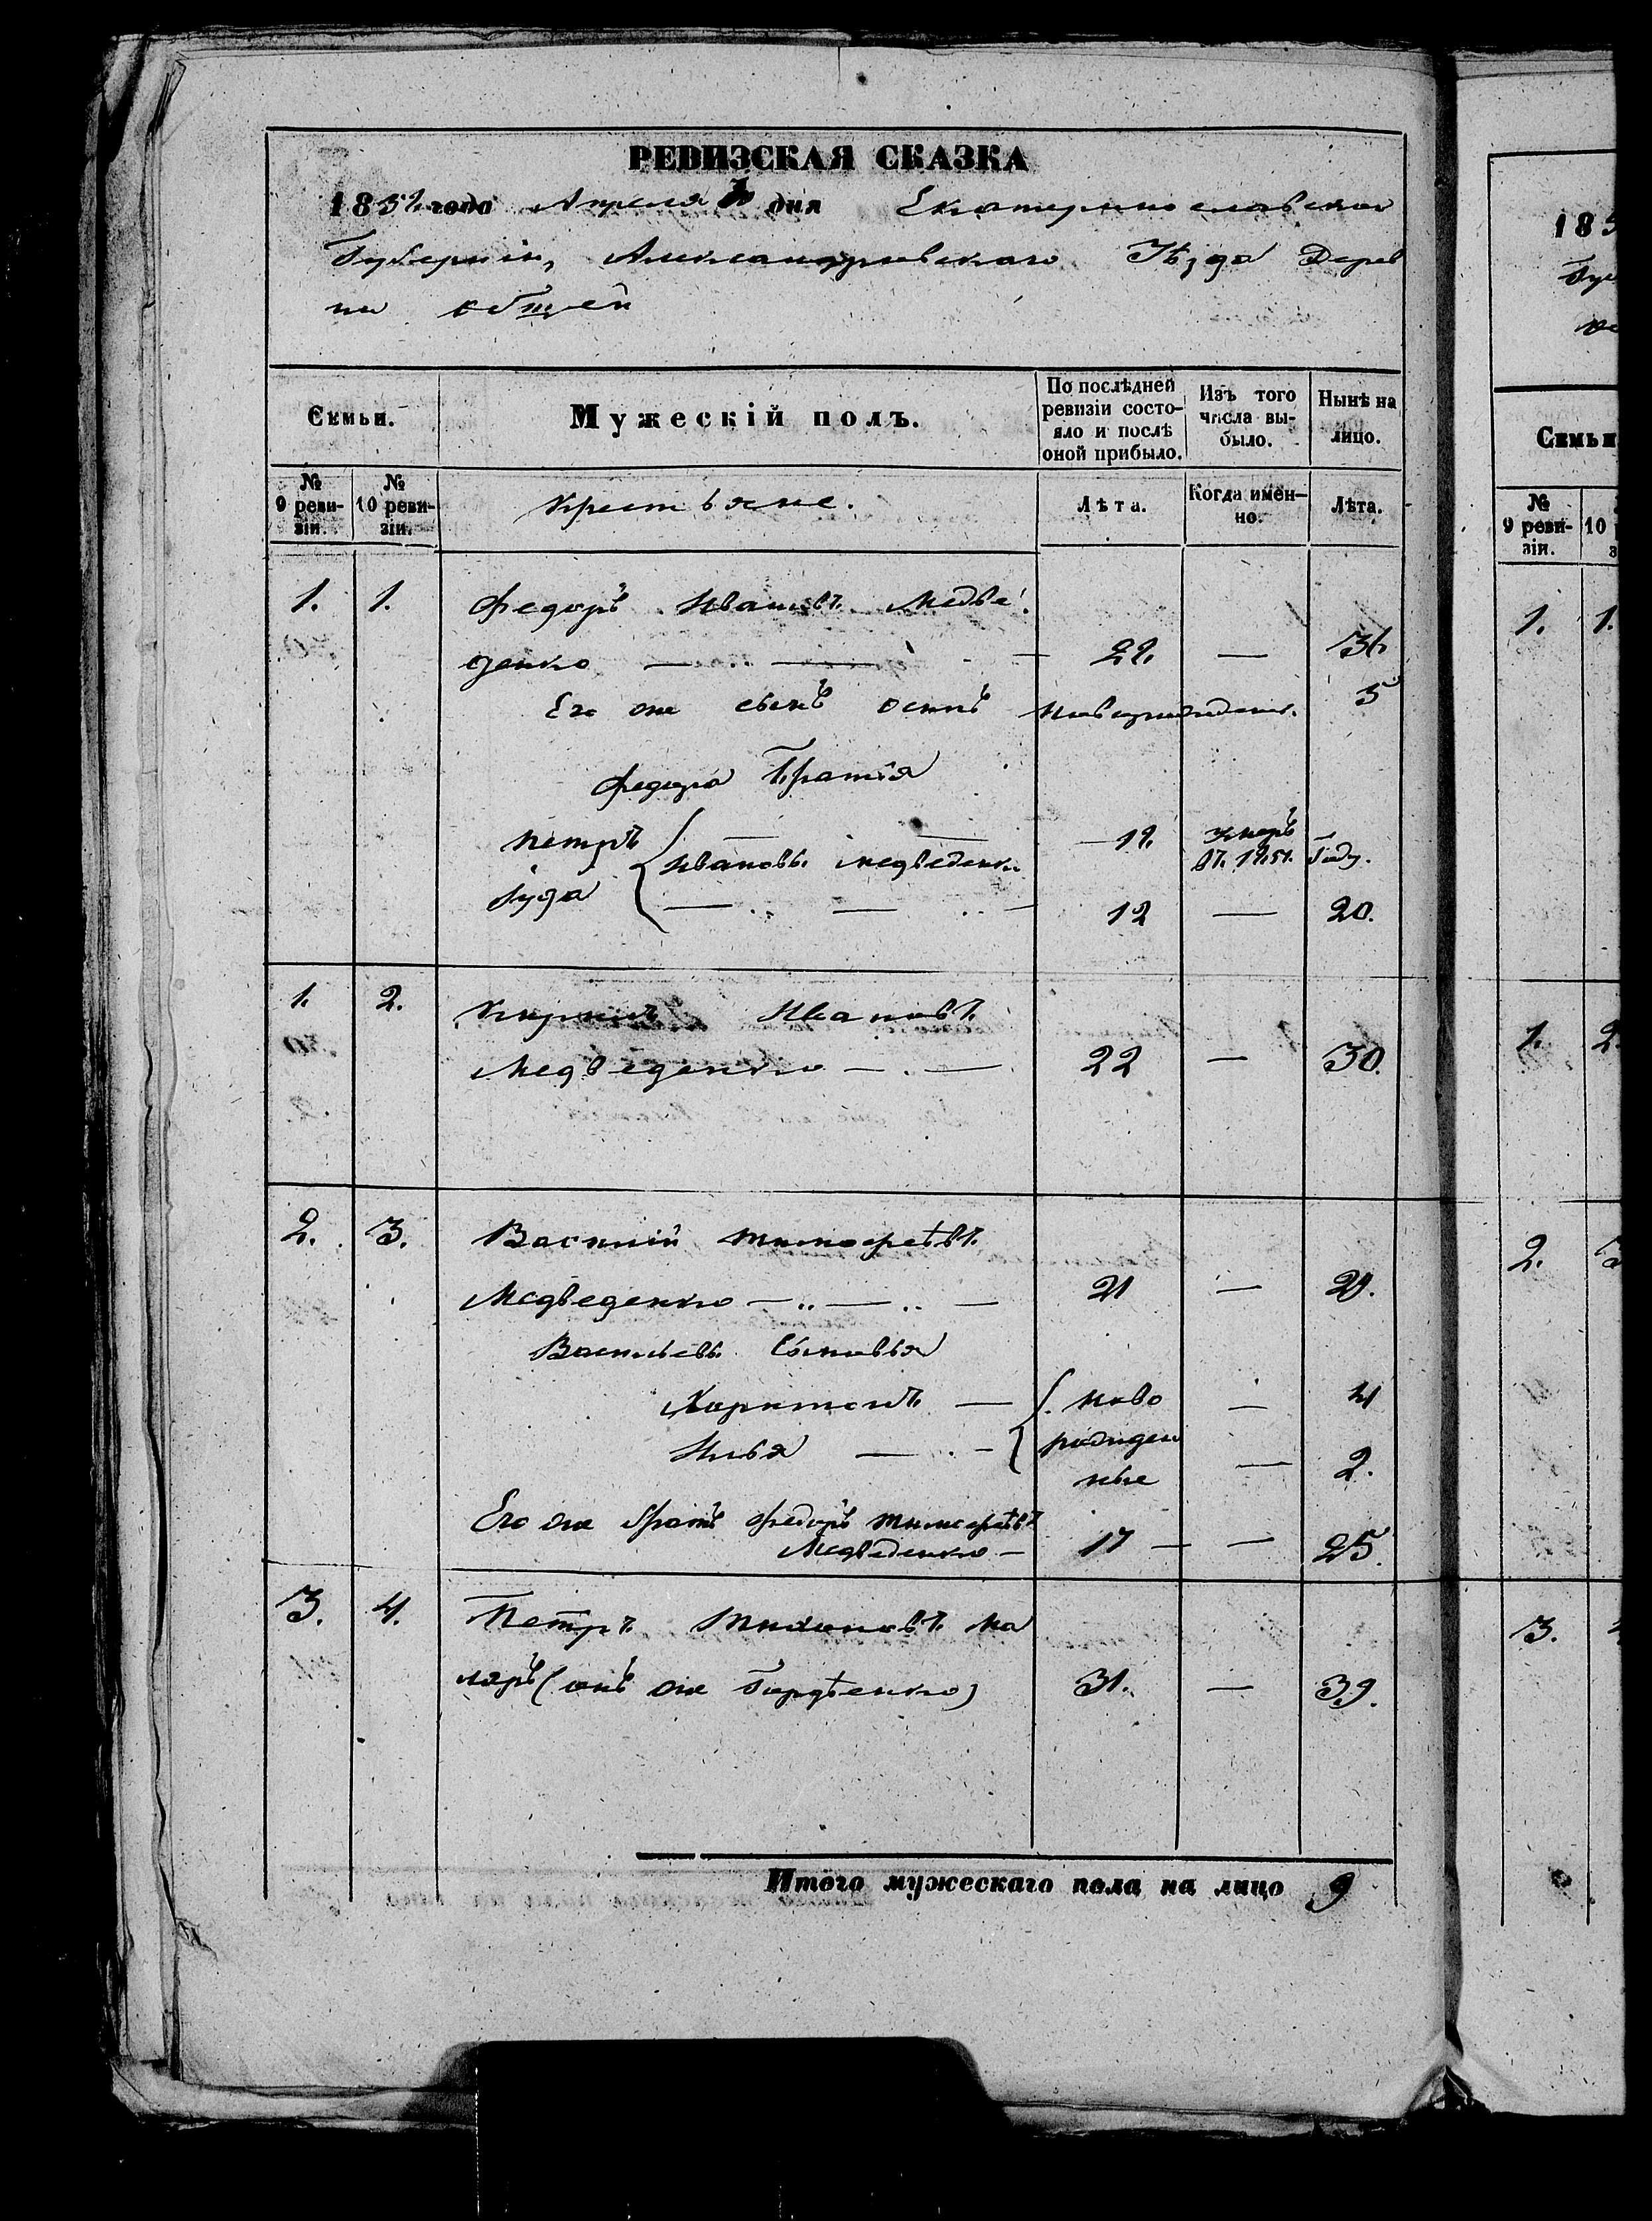 РЕВИЗСКАЯ СКАЗКА
1858 года Апреля дня Екатеринославской
Губерніи, Александровскаго Уѣзда Дерев
ни общей
Семьи.
Мужескій полъ.
По послѣдней ревизіи состояло и послѣ оной прибыло.
Изъ того числа выбыло.
Нынѣ на лицо.
№ 9 ревизіи.
№ 10 ревизіи.
Крестьяне.
Лѣта.
Когда именно.
Лѣта.
1. 1. Федоръ Ивановъ Медве
денко — — 28. — 36
Его же сынъ Осипъ новорожденн. 5
Федора Братія
Петръ { Ивановы Медведенки — 18. умеръ въ 1851. году.
Іуда — — 12 — 20.
1. 2. Кирилъ Ивановъ
Медведенко — — 22 — 30.
2. 3. Василій Тимофеевъ
Медведенко — — — 21 — 29.
Васильевы Сыновья
Харитонъ — { ново — 4
Илья — — { рожден — 2.
ные
Его же братъ Федоръ Тимофеевъ
Медведенко — 17 — — 25.
3. 4. Петръ Тихоновъ Ма
ляръ (онъ же Гордѣенко) 31. — 39.
Итого мужескаго пола на лицо 9
185
Семьи
№ 9 ревизіи.
10
1. 1.
1. 2.
2. 3
3.